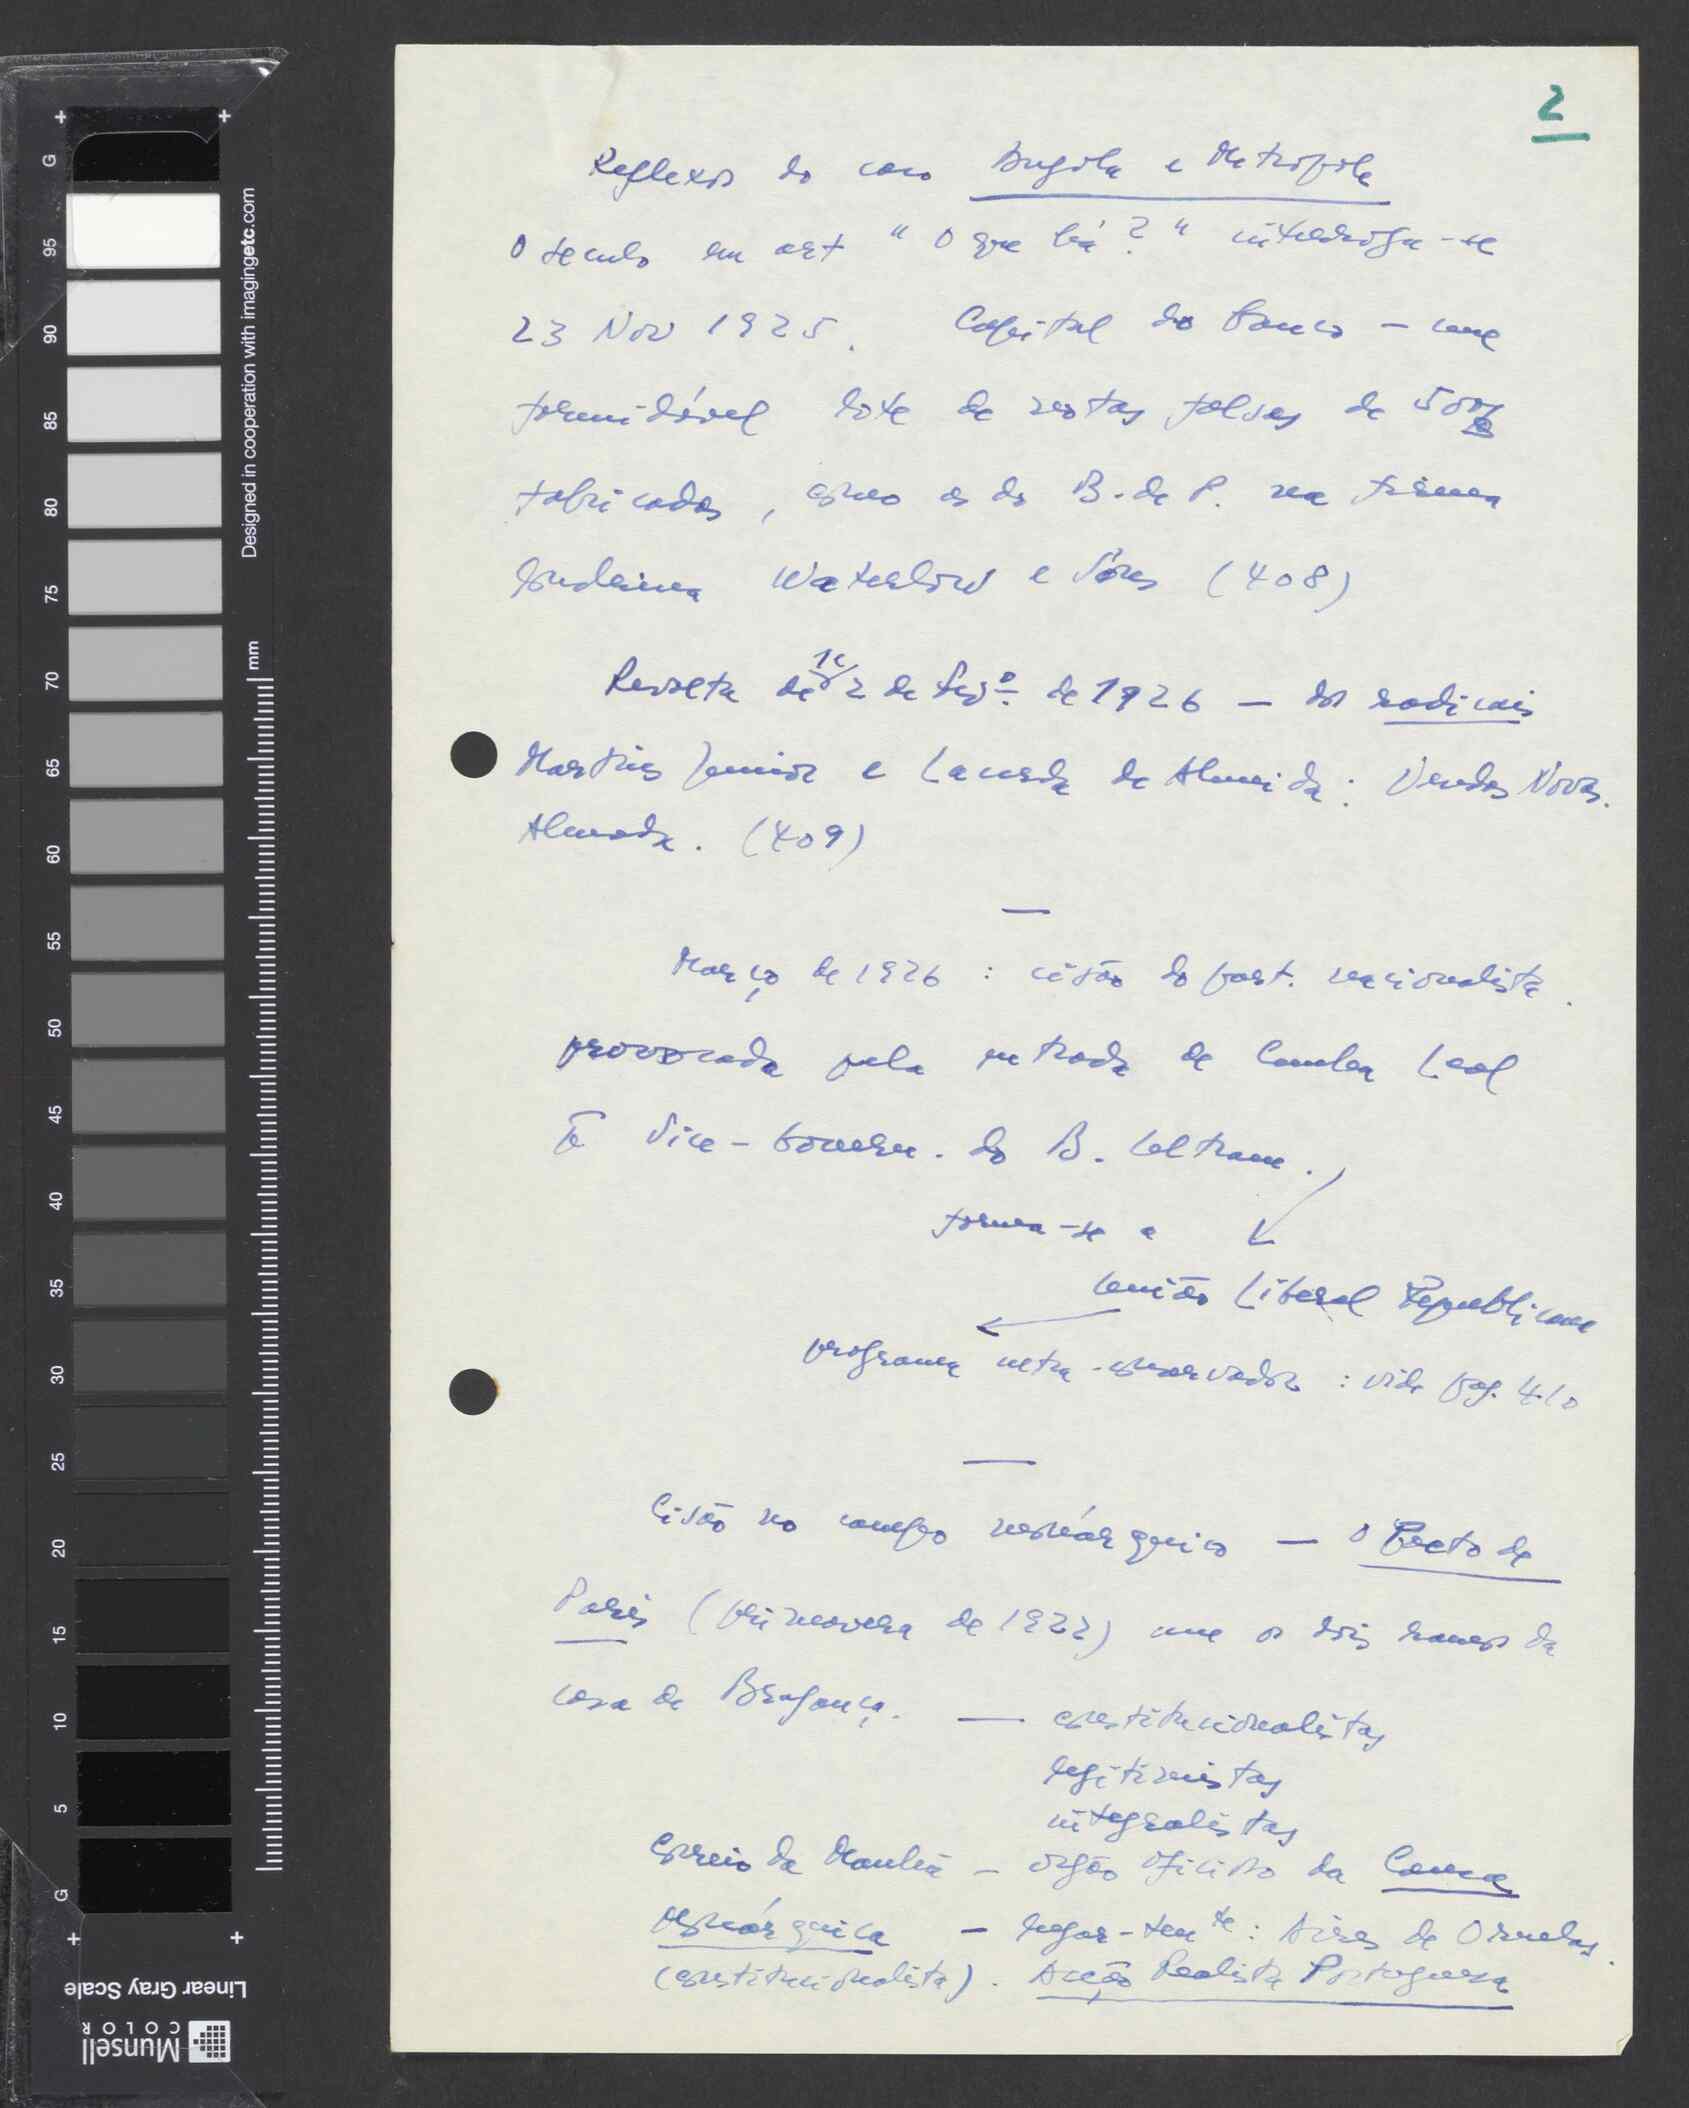 2
Reflexos do caso Angola e Metrópole
O Seculo em art "O que há?" interroga-se
23 Nov 1925. Capital do Banco – um
formidável lote de notas falsas de 500$
fabricadas, como as do B. de P. na firma
londrina Waterlow e Sons (408)
Revolta de 1 e/ 2 de Fevº de 1926 — dos radicais
Martins Junior e Lacerda de Almeida: Vendas Novas.
Almada. (409)
—
Março de 1926 : cisão do part. nacionalista.
provocada pela entrada de Cunha Leal
Vice-Govern. do B. Ultram.
forma-se a
União Liberal Republicana
programa ultra-conservador : vide pag. 410
—
Cisão no campo monárquico — O Pacto de
Paris (primavera de 1922) une os dois ramos da
casa de Bragança. — constitucionalistas
legitimistas
integralistas
Correio da Manhã – orgão oficioso da Causa
Monárquica – lugar-tente: Aires de Ornelas.
(constitucionalista). Acção Realista Portuguesa
G
95
90
85
80
75
70
65
60
55
50
45
40
35
30
25
20
15
10
5
G
Designed in cooperation with imagingetc.com
mm
Linear Gray Scale
Munsell
COLOR